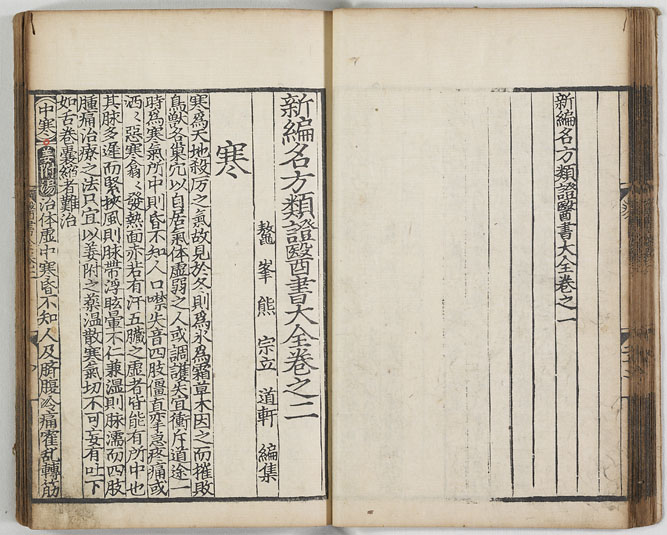 新編名方類證醫書大全卷之一
新編名方類證醫書大全卷之二
鼇峯熊宗立道軒編集
寒
寒爲天地殺厉之氣故見於冬則爲氷爲霜草木因之而摧敗
鳥獣各巢穴以自居氣体虛弱之人或調護失宜衝斥道途一
時爲寒氣所中則昏不知人口噤失音四肢僵直挛急疼痛或
洒〻惡寒翕〻發熱面赤若有汗五臟之虛者皆能有所中也
其脉多遅而緊挾風則脉帶浮眩暈不仁兼濕則脉濡而四肢
腫痛治療之法只宜以姜附之藥温散寒氣切不可妄有吐下
如舌卷囊縮者難治
中寒姜附湯治体虛中寒昏不知人及臍腹冷痛霍乱轉筋